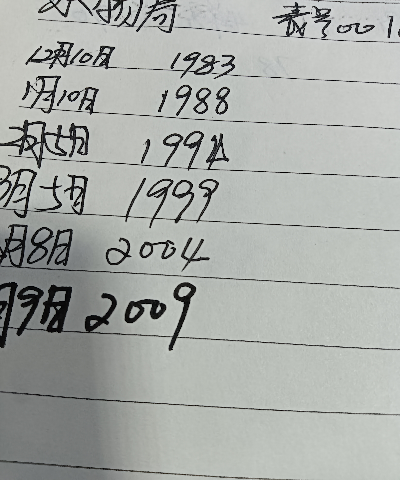 表号001
12月10日 1983
1月10日 1988
2月5日 1994
3月5日 1999
月8日 2004
月9日 2009